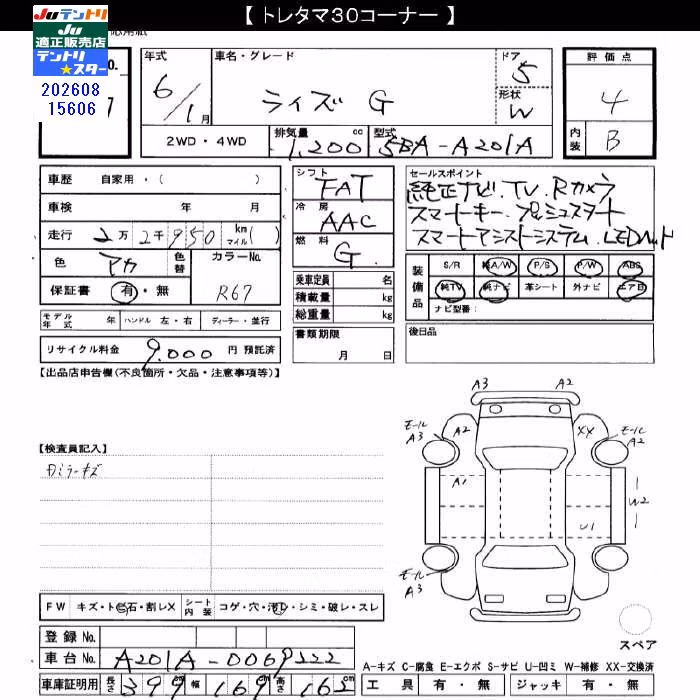 【 トレタマ30コーナー 】
Juテントリ
Ju
適正販売店
テントリ
★スター
202608
15606
年式
6/1月
車名・グレード
ライズ G
ドア
5
形状
W
評価点
4
内装
B
2WD・4WD
排気量
1,200 cc
型式
5BA-A201A
車歴 自家用・( )
車検 年 月
走行 2万2千950 km マイル( )
色 アカ
色替
カラーNo.
R67
保証書 有・無
シフト
FAT
冷房
AAC
燃料
G
セールスポイント
純正ナビ.TV.Rカメラ
スマートキー.プッシュスタート
スマートアシストシステム.LEDヘッド
装備品
S/R 純A/W P/S P/W ABS
純TV 純ナビ 革シート 外ナビ エアB
ナビ型番:
乗車定員 名
積載量 kg
総重量 kg
モデル年式 年 ハンドル 左・右 ディーラー・並行
書類期限
月 日
後日品
リサイクル料金 9,000 円 預託済
【出品店申告欄(不良箇所・欠品・注意事項等)】
【検査員記入】
Rミラーキズ
A3 A2
モール
A3
A2
XX
モール
A2
A1
W2
U1
モール
A3
スペア
FW キズ・ト石・割レX
シート内装 コゲ・穴・汚レ・シミ・破レ・スレ
登録No.
車台No. A201A-0069222
車庫証明用 長さ 399 cm 幅 169 cm 高さ 162 cm
A-キズ C-腐食 E-エクボ S-サビ U-凹ミ W-補修 XX-交換済
工具 有・無 ジャッキ 有・無